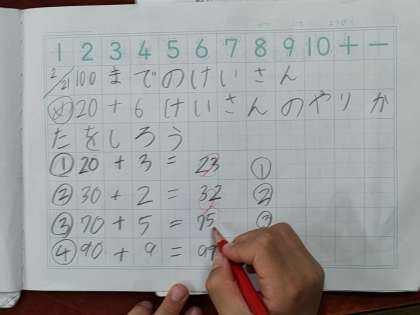 1 2 3 4 5 6 7 8 9 10 + −
2/21 100までのけいさん
め 20+6けいさんのやりか
たをしろう
① 20 + 3 = 23 ①
② 30 + 2 = 32 ②
③ 70 + 5 = 75 ③
④ 90 + 9 =